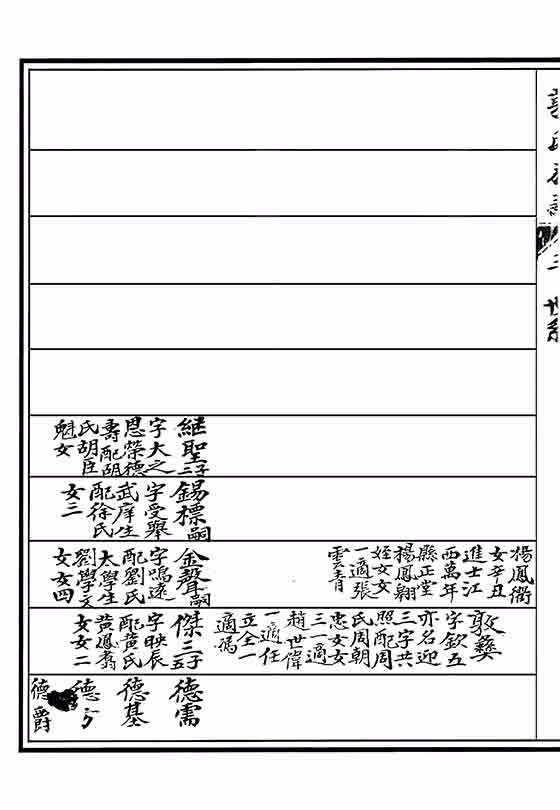 世系
楊鳳衢
女辛丑
進士江
西萬年
縣正堂
楊鳳翱
姪女女
一適張
雲青
敦彝
字欽五
亦名迎
三字共
照配周
氏周朝
忠女女
三一適
趙世偉
一適任
立全一
適馮
継聖子二
字大之
恩榮德
壽配胡
氏胡臣
魁女
錫標嗣
字受舉
武庠生
配徐氏
女三
金聲嗣
字鳴遠
配劉氏
太學生
劉學文
女女四
傑三子五
字映辰
配黄氏
黄鳳翥
女女二
德需
德基
德
德爵